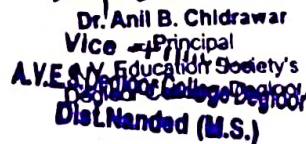 Dr. Anil B. Chidrawar
Vice Principal
A.V. Education Society's
Degloor College Degloor
Dist.Nanded (M.S.)